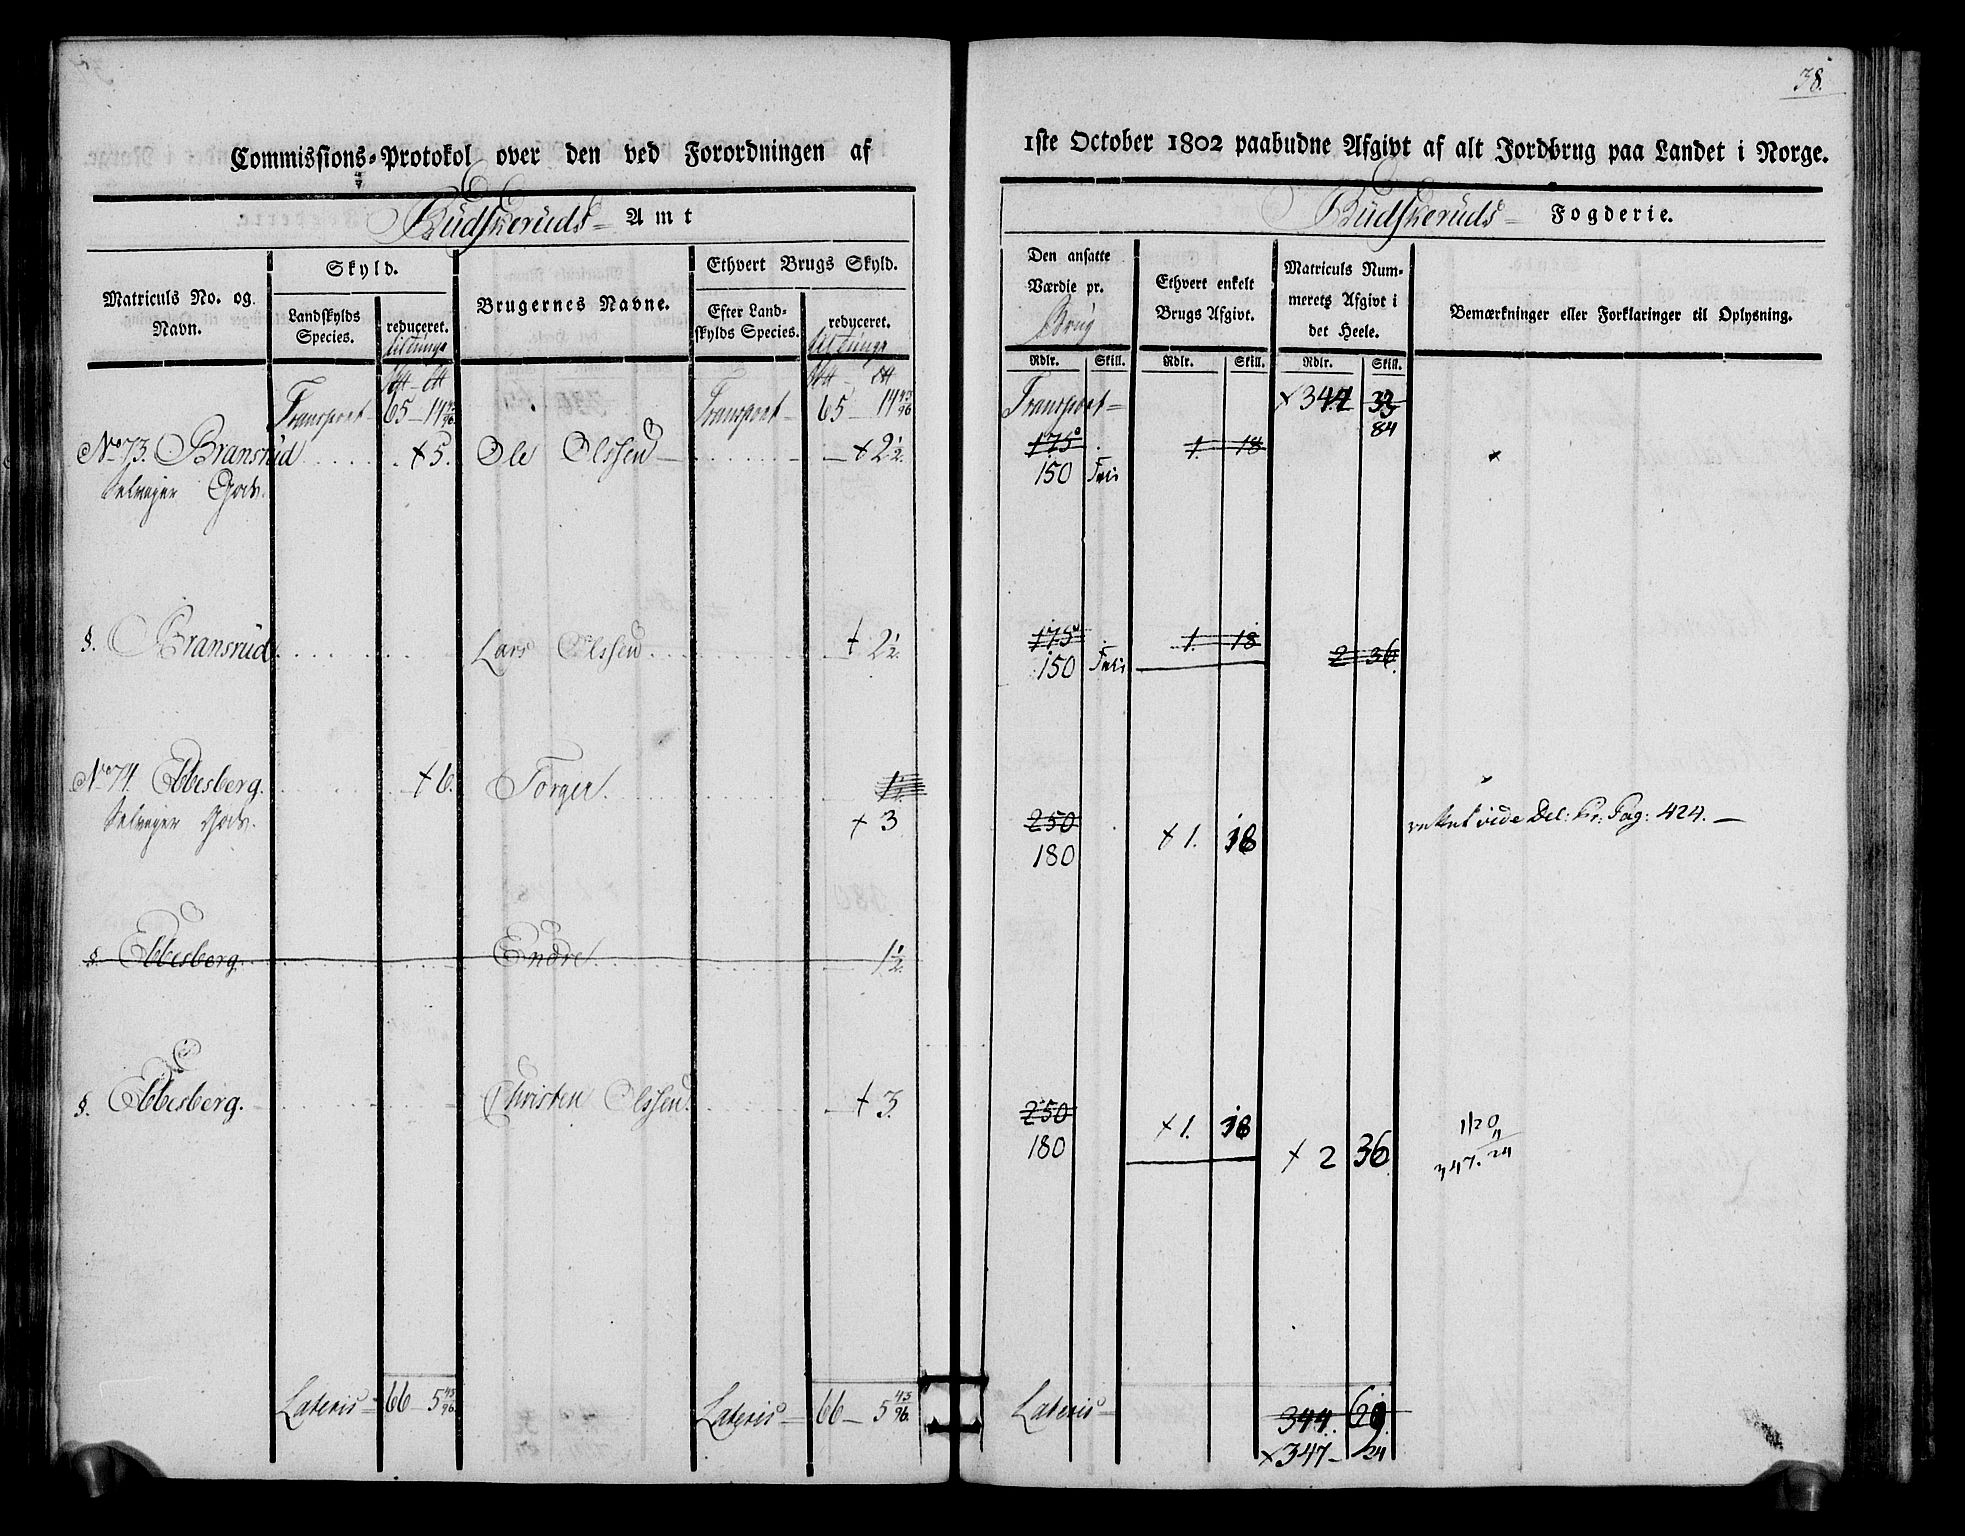 38.
Commissions-Protokol over den ved Forordningen af
Budskeruds Amt
Matriculs No. og Navn.
Skyld.
Landskylds Species.
reduceret.
Brugernes Navne.
Ethvert Brugs Skyld.
Efter Landskylds Species.
reduceret.
Transport 65 – 14 43/96 Transport 65 – 14 43/96
No 73. Bransrud + 5. Ole Olssen + 2½.
Selveyer Gods.
§. Bransrud Lars Olssen + 2½.
No 74. Ebbesberg. + 6. Torger. 1½.
Selveyer Gods. + 3
§. Ebbesberg. Endre 1½.
§. Ebbesberg. Christen Olssen + 3.
Lateris 66 – 5 43/96. Lateris 66 – 5 43/96.
1ste October 1802 paabudne Afgivt af alt Jordbrug paa Landet i Norge.
Budskeruds Fogderie.
Den ansatte Værdie pr. Brug
Ethvert enkelt Brugs Afgivt.
Matriculs Nummerets Afgivt i det Heele.
Bemærkninger eller Forklaringer til Oplysning.
Rdlr. Skill. Rdlr. Skill. Rdlr. Skill.
Transport + 344 33
84
175 1. 18
150
175 1. 18
150 2 36
250
180 + 1. 18 vide Del: Pr: Pag: 424.
250
180 + 1. 18 + 2 36
1/20
347. 24
Lateris 344.
+ 347 – 24